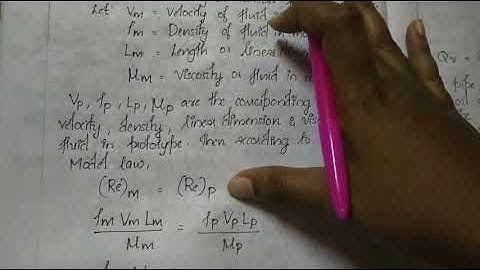 Let Vm = Velocity of fluid
ρm = Density of fluid in
Lm = Length or linear
μm = Viscosity of fluid in
Vp, ρp, Lp, μp are the corresponding
velocity, density, linear dimension &
fluid in prototype. Then according to
Model law,
(Re)m = (Re)p
ρm Vm Lm / μm = ρp Vp Lp / μp
pipe